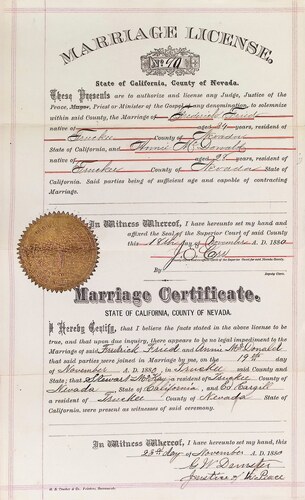 MARRIAGE LICENSE,
No 90
State of California, County of Nevada.
These Presents are to authorize and license any Judge, Justice of the
Peace, Mayor, Priest or Minister of the Gospel of any denomination, to solemnize
within said County, the Marriage of Frederick Fried
native of aged 29 years, resident of
Truckee County of Nevada
State of California, County and Annie McDonald
native of aged 28 years, resident of
Truckee County of Nevada State of
California. Said parties being of sufficient age and capable of contracting
Marriage.
In Witness Whereof, I have hereunto set my hand and
affixed the Seal of the Superior Court of said County
this 18th day of November A. D. 1880
J. E. Carr
By
Deputy Clerk.
Marriage Certificate.
STATE OF CALIFORNIA, COUNTY OF NEVADA.
I Hereby Certify, that I believe the facts stated in the above license to
be true, and that upon due inquiry, there appears to be no legal impediment to the
Marriage of said Fredrick Fried and Annie McDonald
that said parties were joined in Marriage by me, on the 19th day
of November A. D. 1880, in Truckee said County and
State; that Stewart McKay a resident of Truckee County of
Nevada State of California, and Ed Cargill
a resident of Truckee County of Nevada State of
California, were present as witnesses of said ceremony.
In Witness Whereof, I have hereunto set my hand, this
23rd day of November A. D. 1880
Justice of the Peace